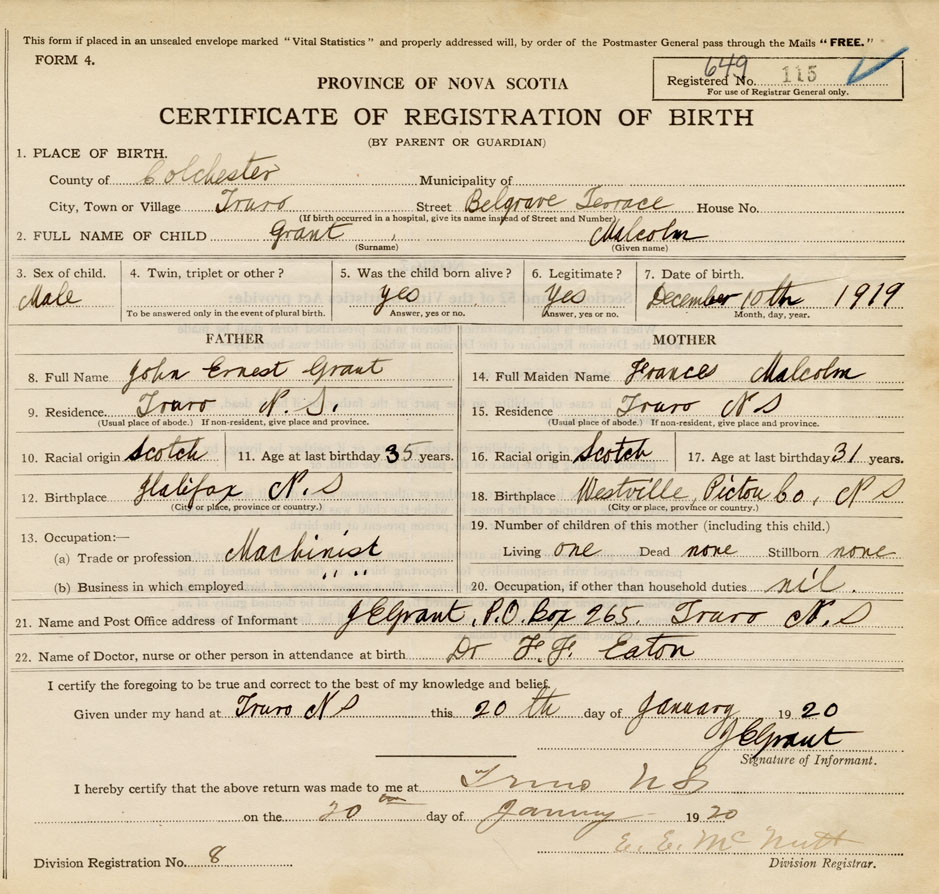 This form if placed in an unsealed envelope marked "Vital Statistics" and properly addressed will, by order of the Postmaster General pass through the Mails "FREE."
FORM 4.
649
Registered No. 115
For use of Registrar General only.
PROVINCE OF NOVA SCOTIA
CERTIFICATE OF REGISTRATION OF BIRTH
(BY PARENT OR GUARDIAN)
1. PLACE OF BIRTH.
County of Colchester Municipality of
City, Town or Village Truro Street Belgrave Terrace House No.
(If birth occurred in a hospital, give its name instead of Street and Number)
2. FULL NAME OF CHILD Grant, Malcolm
(Surname) (Given name)
3. Sex of child. 4. Twin, triplet or other? 5. Was the child born alive? 6. Legitimate? 7. Date of birth.
Male yes Yes December 10th 1919
To be answered only in the event of plural birth. Answer, yes or no. Answer, yes or no. Month, day, year.
FATHER MOTHER
8. Full Name John Ernest Grant 14. Full Maiden Name Frances Malcolm
9. Residence. Truro N.S. 15. Residence Truro N S
(Usual place of abode.) If non-resident, give place and province. (Usual place of abode.) If non-resident, give place and province.
10. Racial origin Scotch 11. Age at last birthday 35 years. 16. Racial origin. Scotch 17. Age at last birthday 31 years.
12. Birthplace Halifax N.S 18. Birthplace Westville, Pictou Co, N S
(City or place, province or country.) (City or place, province or country.)
13. Occupation:— 19. Number of children of this mother (including this child.)
(a) Trade or profession Machinist Living one Dead none Stillborn none
(b) Business in which employed " " " 20. Occupation, if other than household duties nil.
21. Name and Post Office address of Informant J E Grant, P.O. Box 265. Truro N.S
22. Name of Doctor, nurse or other person in attendance at birth Dr F. F. Eaton
I certify the foregoing to be true and correct to the best of my knowledge and belief.
Given under my hand at Truro N S this 20th day of January 1920
J E Grant
Signature of Informant.
I hereby certify that the above return was made to me at Truro N S
on the 20 day of January 1920
E. E. McNutt
Division Registration No. 8 Division Registrar.